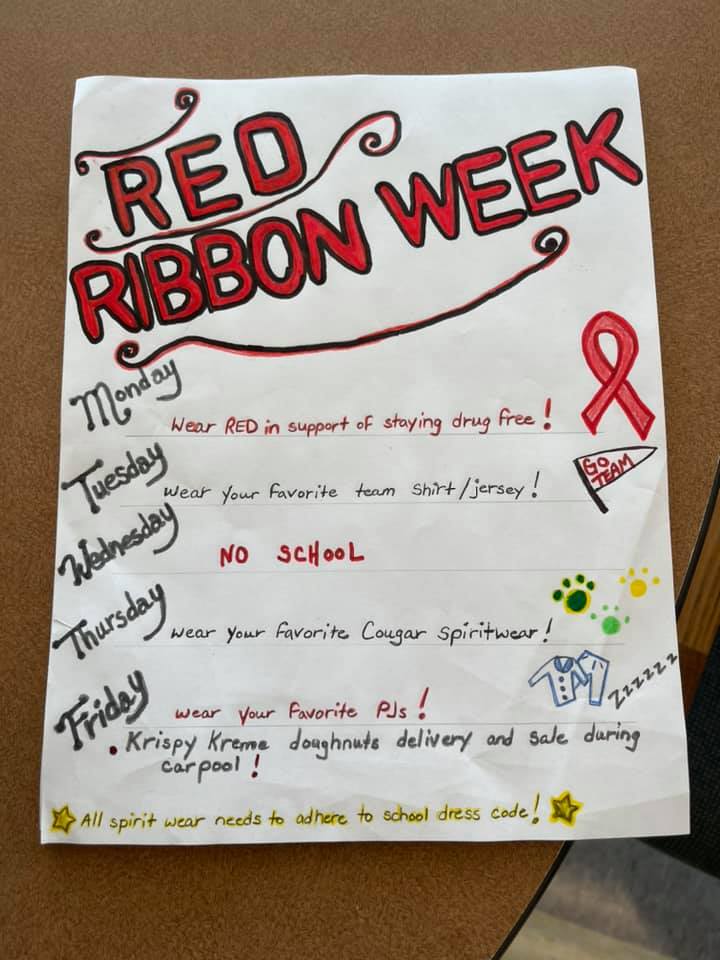 RED
RIBBON WEEK
Monday
Wear RED in support of staying drug free!
Tuesday
GO TEAM
Wear your favorite team shirt/jersey!
Wednesday
NO SCHOOL
Thursday
Wear your favorite Cougar Spiritwear!
Friday
zzzzzz
Wear your favorite PJs!
• Krispy Kreme doughnuts delivery and sale during
carpool!
All spirit wear needs to adhere to school dress code!